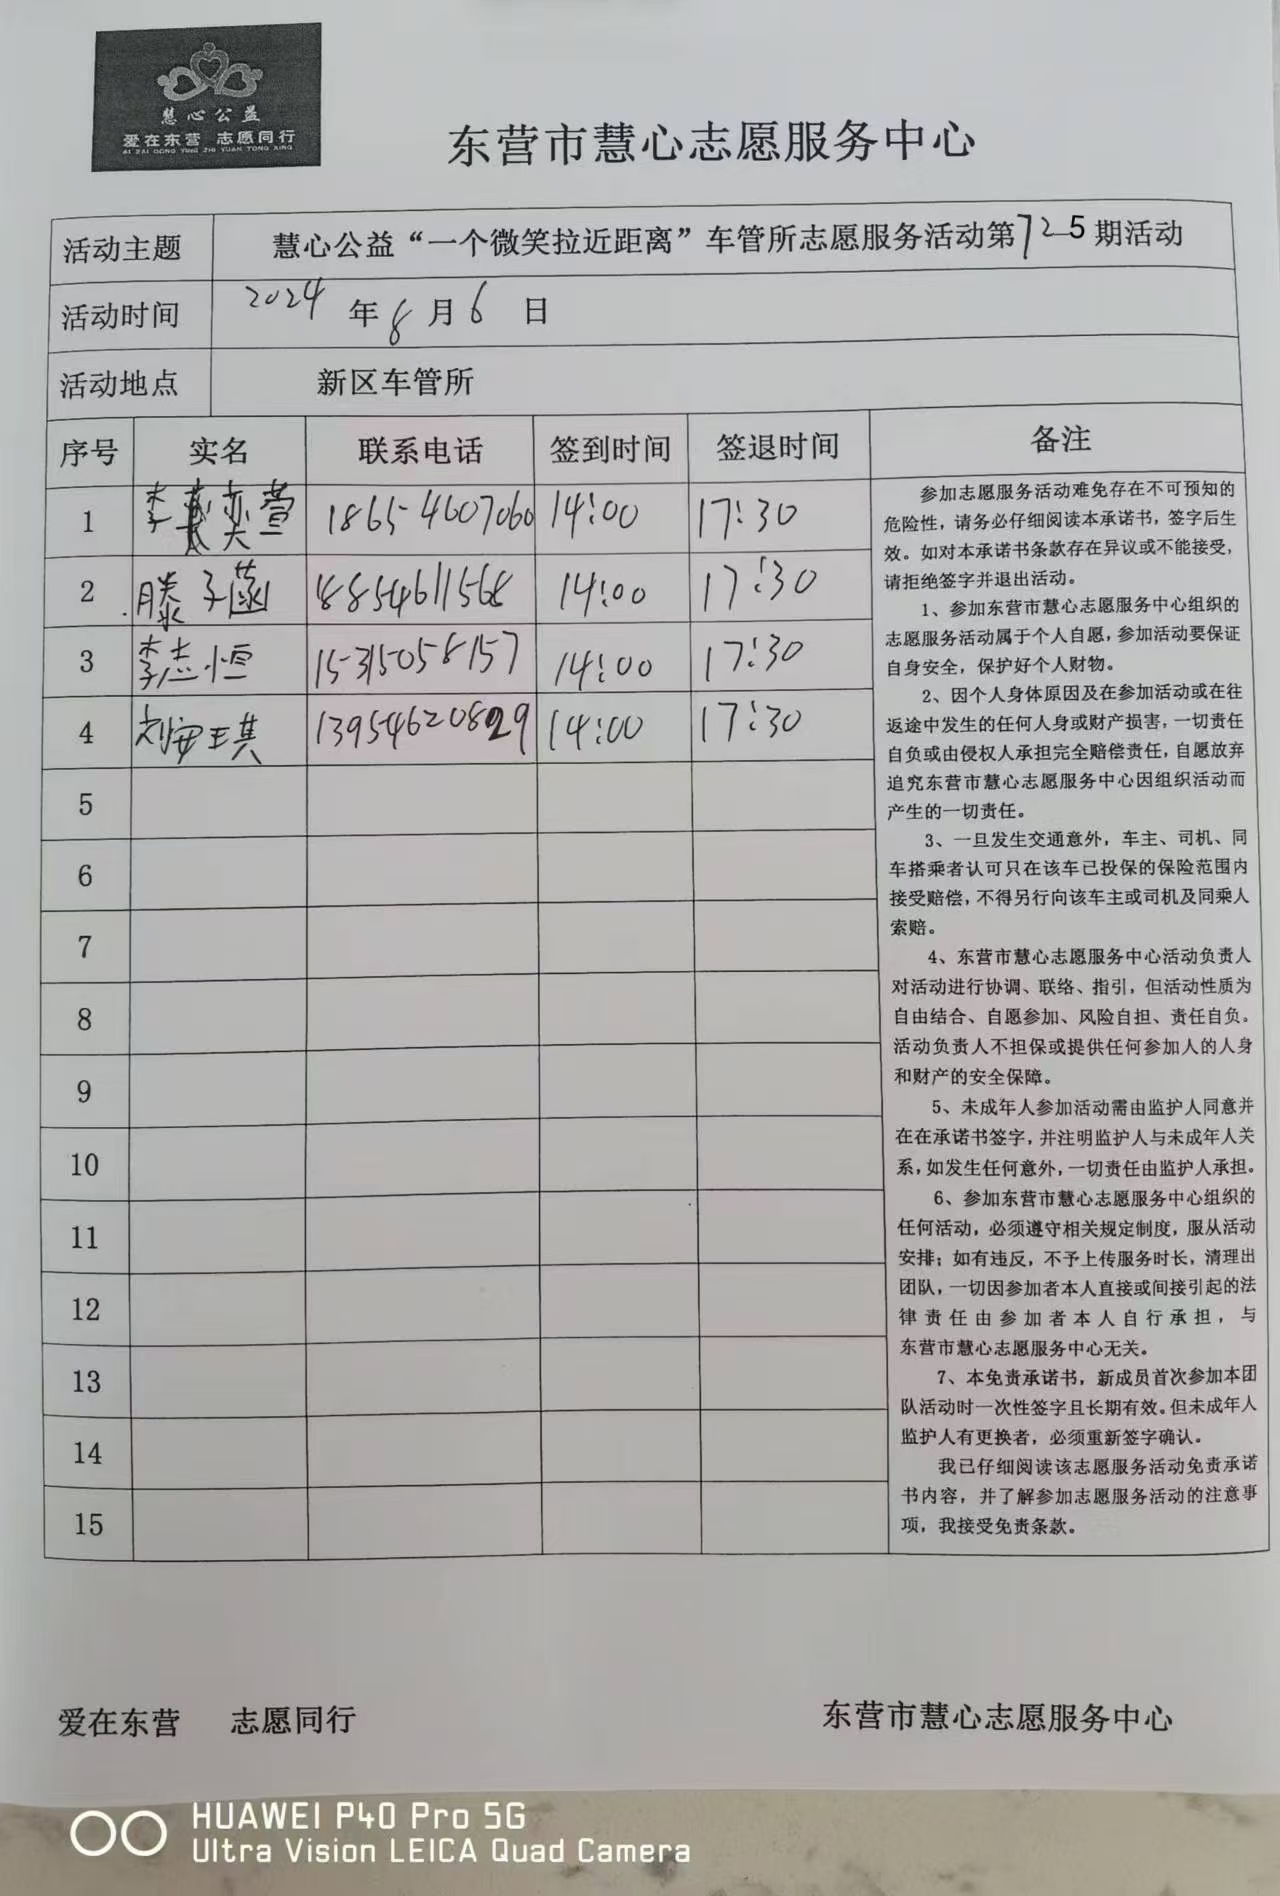 慧心公益
爱在东营 志愿同行
AI ZAI DONG YING ZHI YUAN TONG XING
东营市慧心志愿服务中心
活动主题 慧心公益“一个微笑拉近距离”车管所志愿服务活动第725期活动
活动时间 2024年8月6日
活动地点 新区车管所
序号 实名 联系电话 签到时间 签退时间 备注
1 李奕萱 18654607060 14:00 17:30
2 滕子菡 18854611568 14:00 17:30
3 李志恒 15315058157 14:00 17:30
4 刘安琪 13954620829 14:00 17:30
5
6
7
8
9
10
11
12
13
14
15
参加志愿服务活动难免存在不可预知的
危险性，请务必仔细阅读本承诺书，签字后生
效。如对本承诺书条款存在异议或不能接受，
请拒绝签字并退出活动。
1、参加东营市慧心志愿服务中心组织的
志愿服务活动属于个人自愿，参加活动要保证
自身安全，保护好个人财物。
2、因个人身体原因及在参加活动或在往
返途中发生的任何人身或财产损害，一切责任
自负或由侵权人承担完全赔偿责任，自愿放弃
追究东营市慧心志愿服务中心因组织活动而
产生的一切责任。
3、一旦发生交通意外，车主、司机、同
车搭乘者认可只在该车已投保的保险范围内
接受赔偿，不得另行向该车主或司机及同乘人
索赔。
4、东营市慧心志愿服务中心活动负责人
对活动进行协调、联络、指引，但活动性质为
自由结合、自愿参加、风险自担、责任自负。
活动负责人不担保或提供任何参加人的人身
和财产的安全保障。
5、未成年人参加活动需由监护人同意并
在在承诺书签字，并注明监护人与未成年人关
系，如发生任何意外，一切责任由监护人承担。
6、参加东营市慧心志愿服务中心组织的
任何活动，必须遵守相关规定制度，服从活动
安排；如有违反，不予上传服务时长，清理出
团队，一切因参加者本人直接或间接引起的法
律责任由参加者本人自行承担，与
东营市慧心志愿服务中心无关。
7、本免责承诺书，新成员首次参加本团
队活动时一次性签字且长期有效。但未成年人
监护人有更换者，必须重新签字确认。
我已仔细阅读该志愿服务活动免责承诺
书内容，并了解参加志愿服务活动的注意事
项，我接受免责条款。
爱在东营 志愿同行 东营市慧心志愿服务中心
HUAWEI P40 Pro 5G
Ultra Vision LEICA Quad Camera